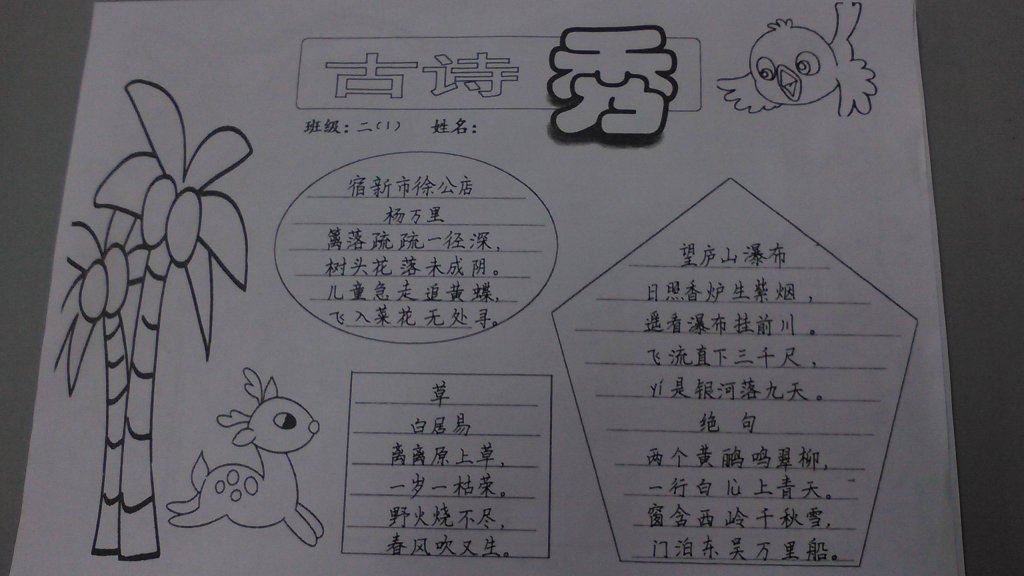 古诗秀
班级：二(1) 姓名：
宿新市徐公店
杨万里
篱落疏疏一径深，
树头花落未成阴。
儿童急走追黄蝶，
飞入菜花无处寻。
草
白居易
离离原上草，
一岁一枯荣。
野火烧不尽，
春风吹又生。
望庐山瀑布
日照香炉生紫烟，
遥看瀑布挂前川。
飞流直下三千尺，
是银河落九天。
绝句
两个黄鹂鸣翠柳，
一行白上青天。
窗含西岭千秋雪，
门泊东吴万里船。